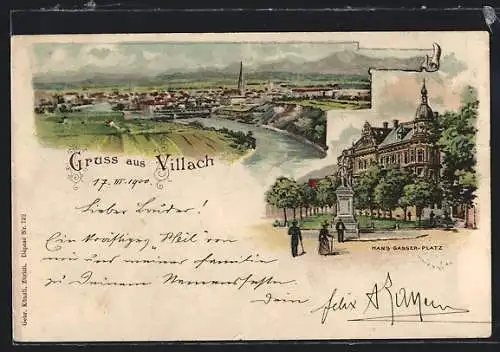 Gruss aus Villach
17. III. 1900.
Lieber Bruder!
Ein kräftiges Heil von
mir und meiner Familie
zu Deinem Namensfeste.
Dein felix
HANS GASSER-PLATZ
Gebr. Künzli, Zürich. Dépose Nr. 721